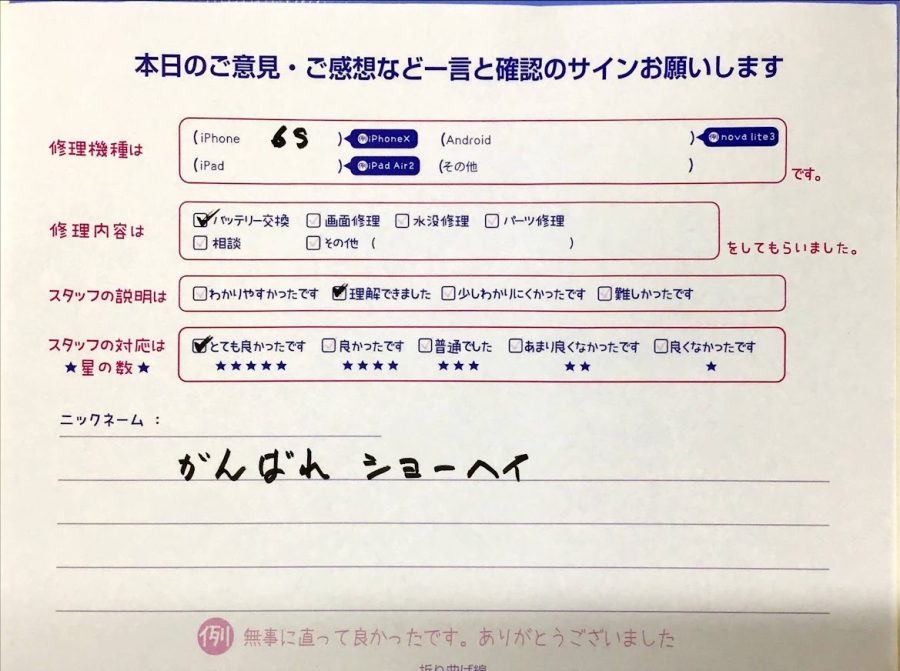 本日のご意見・ご感想など一言と確認のサインお願いします
修理機種は (iPhone 6S ) 例iPhoneX (Android ) 例nova lite3
(iPad ) 例iPad Air2 (その他 ) です。
修理内容は バッテリー交換 画面修理 水没修理 パーツ修理
相談 その他 ( ) をしてもらいました。
スタッフの説明は わかりやすかったです 理解できました 少しわかりにくかったです 難しかったです
スタッフの対応は とても良かったです 良かったです 普通でした あまり良くなかったです 良くなかったです
★星の数★ ★★★★★ ★★★★ ★★★ ★★ ★
ニックネーム:
がんばれ ショーヘイ
例 無事に直って良かったです。ありがとうございました
折り曲げ線